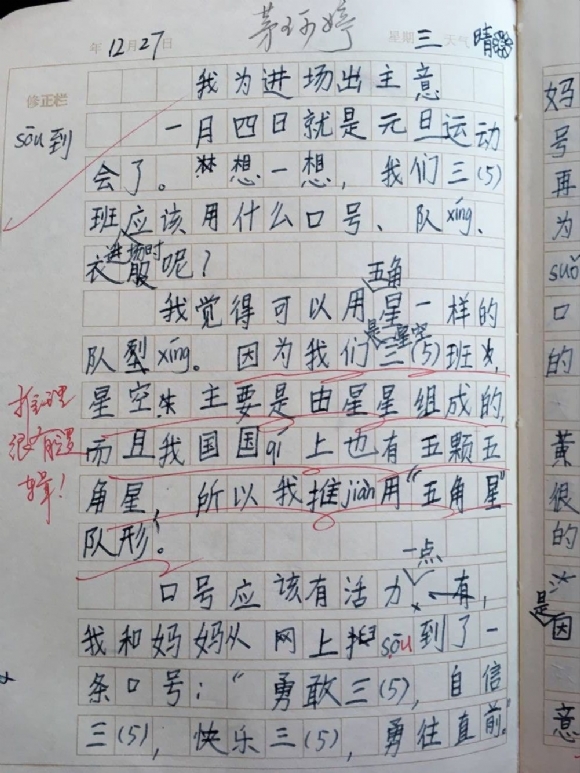 年12月27日 星期三 天气晴
修正栏
我为进场出主意
一月四日就是元旦运动
会了。想一想，我们三(5)
sōu到
班进场时应该用什么口号、队xíng、
衣服呢？
我觉得可以用五角星一样的
队xíng。因为我们三(5)班是星空,
星空主要是由星星组成的,
而且我国国qí上也有五颗五
角星，所以我推jiàn用“五角星”
队形。
推理
很有逻
辑！
口号应该有活力一点,
我和妈妈从网上sōu到了一
条口号：“勇敢三(5)，自信
三(5)，快乐三(5)，勇往直前。”
妈
号
再
为
suǒ
口
的
黄
很
的
是因
意